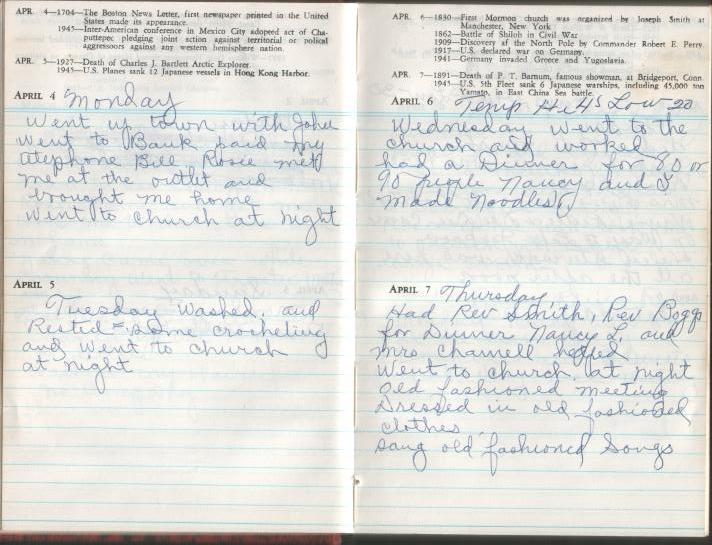 APR. 4—1704—The Boston News Letter, first newspaper printed in the United
States made its appearance.
1945—Inter-American conference in Mexico City adopted act of Cha-
pultepec pledging joint action against territorial or polical
aggressors against any western hemisphere nation.
APR. 5—1927—Death of Charles J. Bartlett Arctic Explorer.
1945—U.S. Planes sank 12 Japanese vessels in Hong Kong Harbor.
APRIL 4 Monday
Went up town with John
went to Bank paid my
telephone Bill Rosie met
me at the outlet and
brought me home
Went to church at night
APRIL 5
Tuesday washed and
Rested - some crocheting
and went to church
at night
APR. 6—1830—First Mormon church was organized by Joseph Smith at
Manchester, New York
1862—Battle of Shiloh in Civil War
1909—Discovery of the North Pole by Commander Robert E. Perry.
1917—U.S. declared war on Germany.
1941—Germany invaded Greece and Yugoslavia.
APR. 7—1891—Death of P. T. Barnum, famous showman, at Bridgeport, Conn.
1945—U.S. 5th Fleet sank 6 Japanese warships, including 45,000 ton
Yamato, in East China Sea battle.
APRIL 6 Temp Hi 45 Low 20
Wednesday went to the
church and worked
had a Dinner for 80 or
90 people Nancy and I
made Noodles
APRIL 7 Thursday
Had Rev Smith, Rev Boggs
for Dinner Nancy L. and
Mrs helped
Went to church at night
old fashioned meeting
Dressed in old fashioned
clothes
sang old fashioned songs